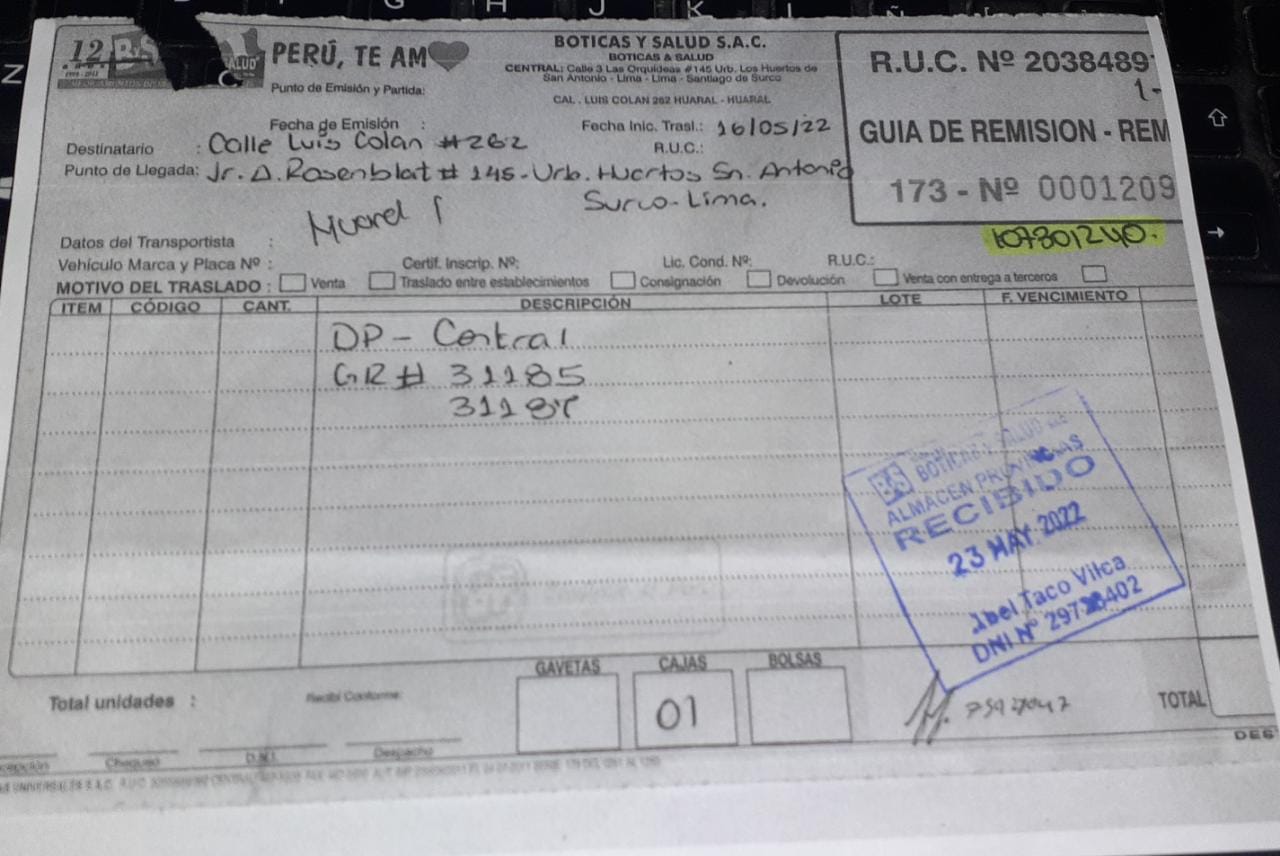 12
PERÚ, TE AM
BOTICAS Y SALUD S.A.C.
BOTICAS & SALUD
CENTRAL: Calle 3 Las Orquideas #145 Urb. Los Huertos de
San Antonio - Lima - Lima - Santiago de Surco
CAL . LUIS COLAN 262 HUARAL - HUARAL
R.U.C. Nº 2038489
GUIA DE REMISION - REM
173 - Nº 0001209
107301240.
Punto de Emisión y Partida:
Fecha de Emisión :
Fecha Inic. Trasl.: 16/05/22
Destinatario : Calle Luis Colan #262
R.U.C.:
Punto de Llegada: Jr. D. Rosenblat # 145 - Urb. Huertos Sn. Antonio
Surco - Lima.
Datos del Transportista :
Vehículo Marca y Placa Nº :
Certif. Inscrip. Nº:
Lic. Cond. Nº:
R.U.C.:
MOTIVO DEL TRASLADO : Venta Traslado entre establecimientos Consignación Devolución Venta con entrega a terceros
ITEM CÓDIGO CANT. DESCRIPCIÓN LOTE F. VENCIMIENTO
DP - Central
GR # 31185
31187
BOTICAS Y SALUD
ALMACEN PROVINCIAS
RECIBIDO
23 MAY 2022
Abel Taco Vilca
DNI Nº
GAVETAS CAJAS BOLSAS
01
Total unidades :
Recibí Conforme:
TOTAL
Chequeo
D.N.I.
Despacho
DES